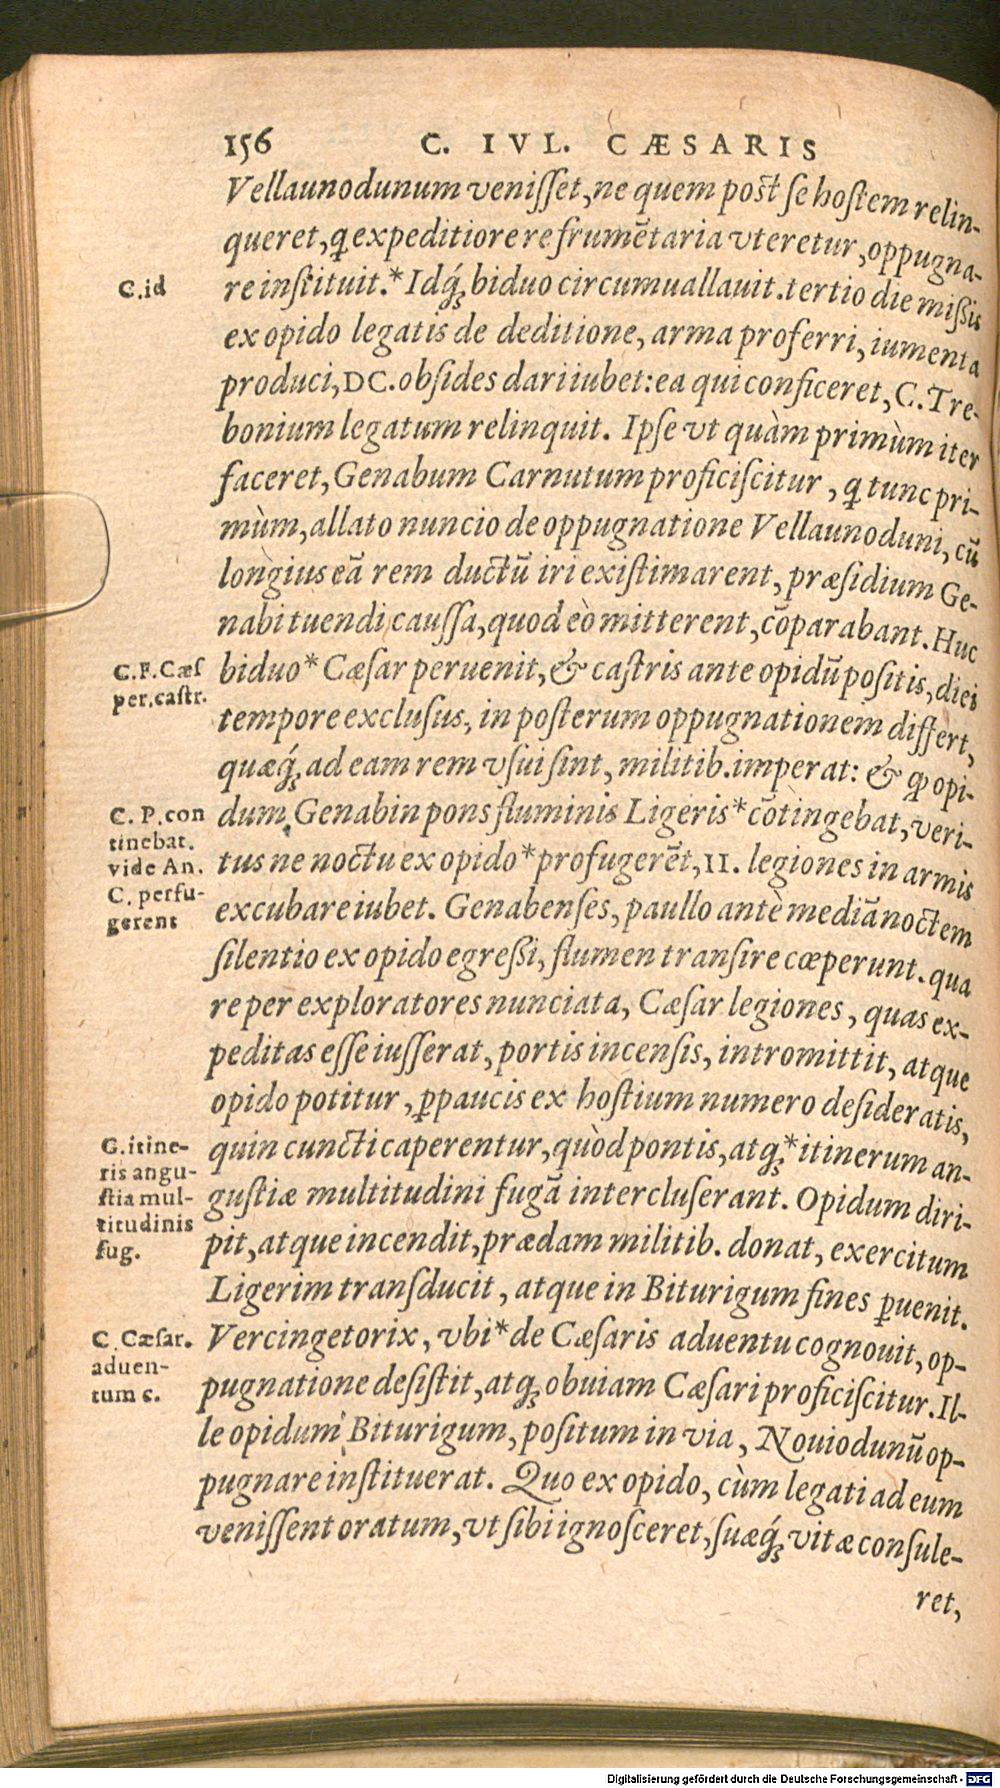 156 C. IVL. CÆSARIS
Vellaunodunum venisset, ne quem post se hostem relin-
queret, q expeditiore re frumẽtaria vteretur, oppugna-
C.id
re instituit.* Idq́; biduo circumuallauit. tertio die missis
ex opido legatis de deditione, arma proferri, iumenta
produci, DC. obsides dari iubet: ea qui conficeret, C. Tre-
bonium legatum relinquit. Ipse vt quàm primùm iter
faceret, Genabum Carnutum proficiscitur, q tunc pri-
mùm, allato nuncio de oppugnatione Vellaunoduni, cũ
longius eã rem ductũ iri existimarent, præsidium Ge-
nabi tuendi caussa, quod eò mitterent, cõparabant. Huc
C.F.Cæs
per.castr.
biduo* Cæsar peruenit, & castris ante opidũ positis, diei
tempore exclusus, in posterum oppugnationem differt,
quæq́; ad eam rem vsui sint, militib. imperat: & ꝙ opi-
C. P. con
tinebat.
vide An.
C. perfu-
gerent
dum Genabin pons fluminis Ligeris* cõtingebat, veri-
tus ne noctu ex opido* profugerẽt, II. legiones in armis
excubare iubet. Genabenses, paullo antè mediã noctem
silentio ex opido egressi, flumen transire cœperunt. qua
re per exploratores nunciata, Cæsar legiones, quas ex-
peditas esse iusserat, portis incensis, intromittit, atque
opido potitur, ꝑpaucis ex hostium numero desideratis,
G.itine-
ris angu-
stia mul-
titudinis
fug.
quin cuncti caperentur, quòd pontis, atq;* itinerum an-
gustiæ multitudini fugã intercluserant. Opidum diri-
pit, atque incendit, prædam militib. donat, exercitum
Ligerim transducit, atque in Biturigum fines ꝑuenit.
C. Cæsar.
aduen-
tum c.
Vercingetorix, vbi* de Cæsaris aduentu cognouit, op-
pugnatione desistit, atq; obuiam Cæsari proficiscitur. Il-
le opidum Biturigum, positum in via, Nouiodunũ op-
pugnare instituerat. Quo ex opido, cùm legati ad eum
venissent oratum, vt sibi ignosceret, suæq́; vitæ consule-
ret,
Digitalisierung gefördert durch die Deutsche Forschungsgemeinschaft - DFG